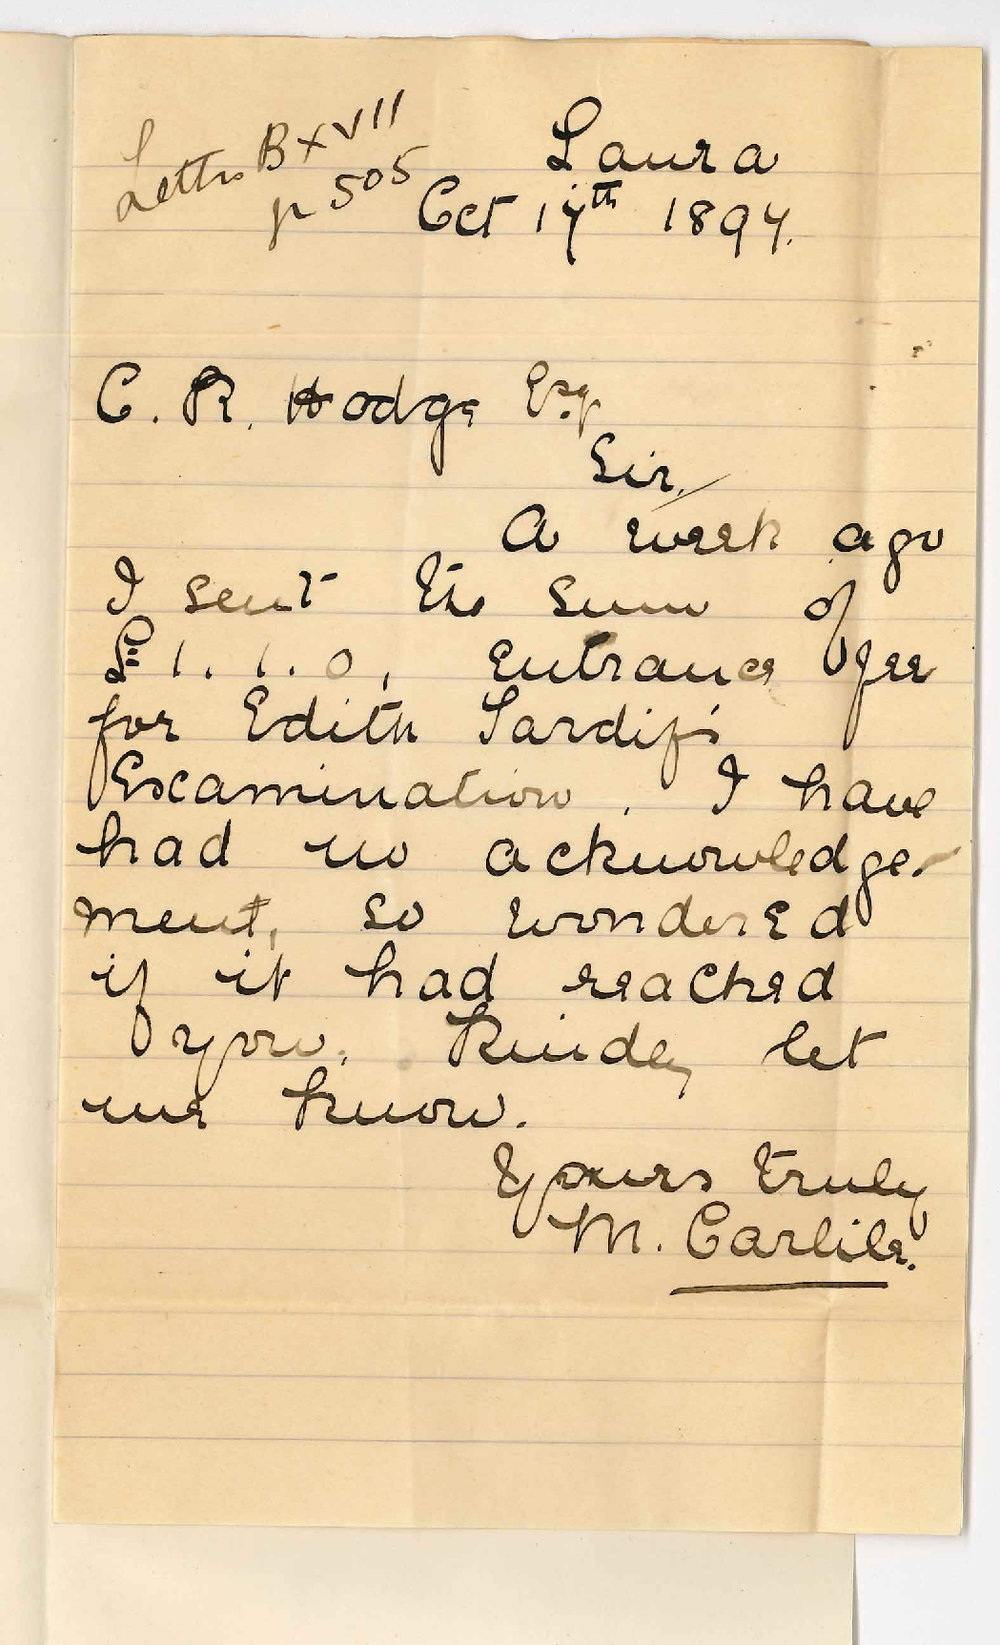 Letter B XVII
p 505
Laura
Oct 17th 1897.
C. R. Hodge Esq
Sir,
A week ago
I sent the sum of
£1.1.0, entrance fee
for Edith Sardif's
Examination. I have
had no acknowledge-
ment, so wondered
if it had reached
you. Kindly let
me know.
Yours truly
M. Carlile.